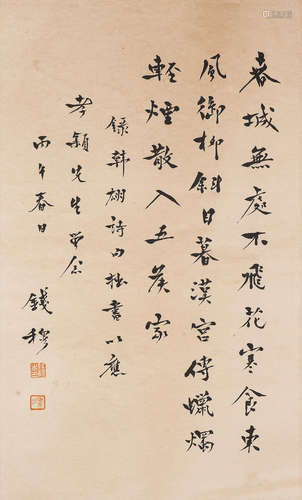 春城無處不飛花寒食東
風御柳斜日暮漢宮傳蠟燭
輕煙散入五侯家
錄韓翃詩句拙書以應
先生留念
丙午春日
錢穆